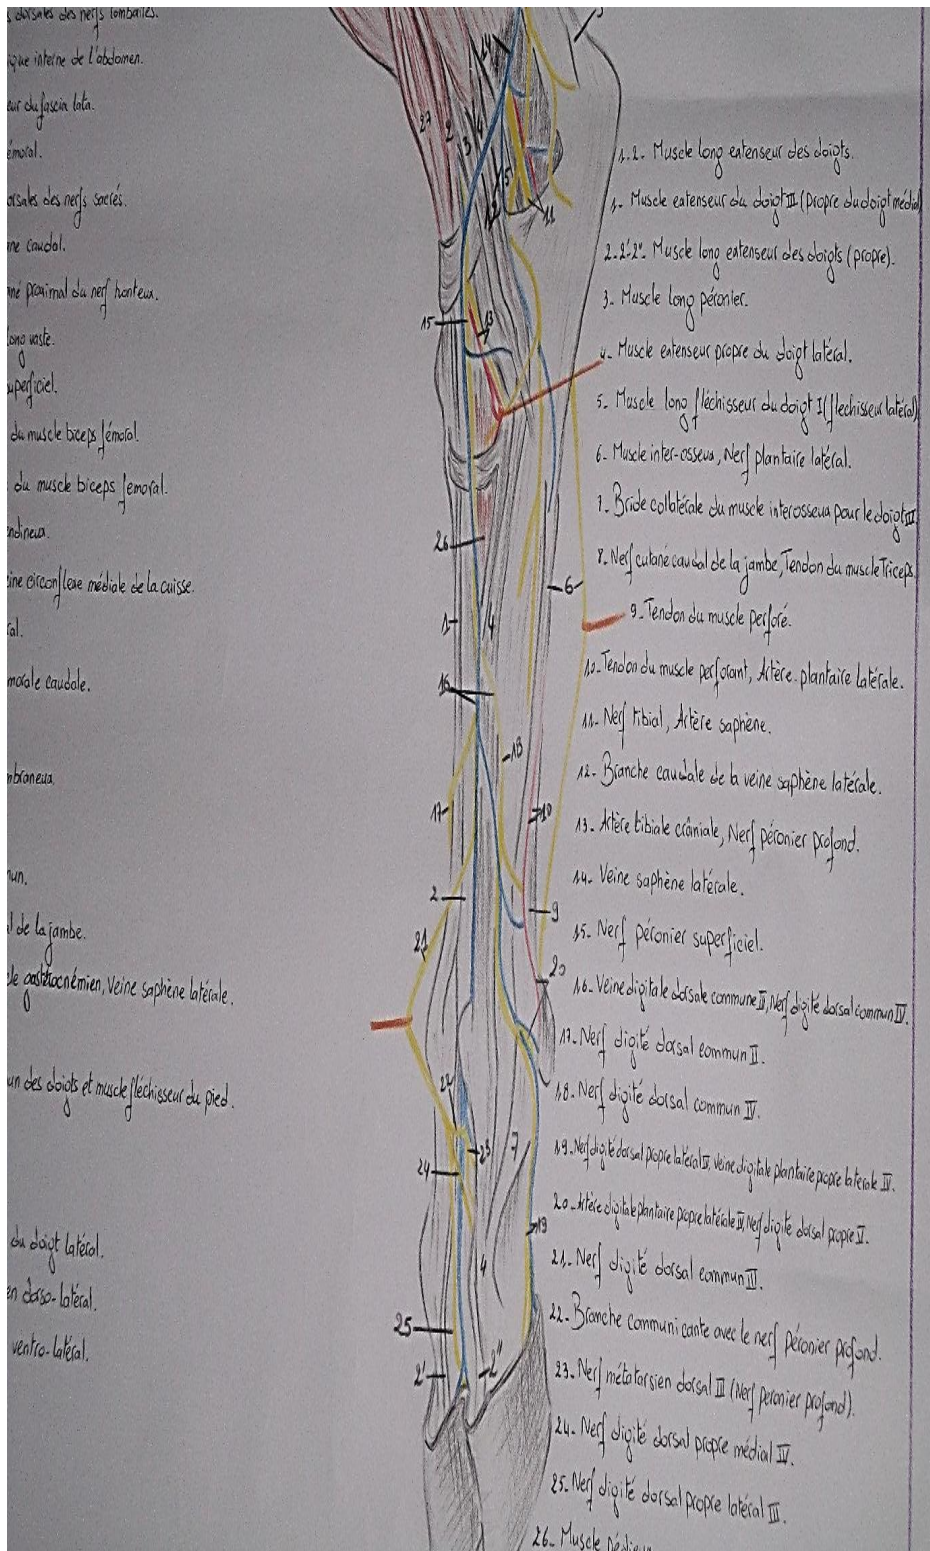 dorsales des nerfs lombaires.
que interne de l'abdomen.
eur du fascia lata.
émoral.
orsales des nerfs sacrés.
ne caudal.
ané proximal du nerf honteux.
long vaste.
uperficiel.
du muscle biceps fémoral.
du muscle biceps femoral.
ndineux.
ine circonflexe médiale de la cuisse.
ral.
morale caudale.
mbraneux
mun.
l de la jambe.
le gastrocnémien, Veine saphène latérale.
un des doigts et muscle fléchisseur du pied.
du doigt latéral.
en dorso-latéral.
ventro-latéral.
27
2
3
4
5
12
11
15
13
26
6
1
4
16
18
17
10
2
9
21
20
22
23
7
24
19
4
25
2'
2"
1.2- Muscle long extenseur des doigts.
1- Muscle extenseur du doigt III (propre du doigt médial
2-2'-2"- Muscle long extenseur des doigts (propre).
3- Muscle long péronier.
4- Muscle extenseur propre du doigt latéral.
5- Muscle long fléchisseur du doigt I (flechisseur latéral)
6- Muscle inter-osseux, Nerf plantaire latéral.
7- Bride collatérale du muscle interosseux pour le doigt III
8- Nerf cutané caudal de la jambe, Tendon du muscle Triceps
9- Tendon du muscle perforé.
10- Tendon du muscle perforant, Artère plantaire latérale.
11- Nerf tibial, Artère saphène.
12- Branche caudale de la veine saphène latérale.
13- Artère tibiale crâniale, Nerf péronier profond.
14- Veine saphène latérale.
15- Nerf péronier superficiel.
16- Veine digitale dorsale commune II, Nerf digité dorsal commun IV.
17- Nerf digité dorsal commun II.
18- Nerf digité dorsal commun IV.
19- Nerf digité dorsal propre latéral IV, Veine digitale plantaire propre latérale IV.
20- Artère digitale plantaire propre latérale IV, Nerf digité dorsal propre V.
21- Nerf digité dorsal commun III.
22- Branche communicante avec le nerf péronier profond.
23- Nerf métatarsien dorsal III (Nerf peronier profond).
24- Nerf digité dorsal propre médial IV.
25- Nerf digité dorsal propre latéral III.
26- Muscle Pédieux